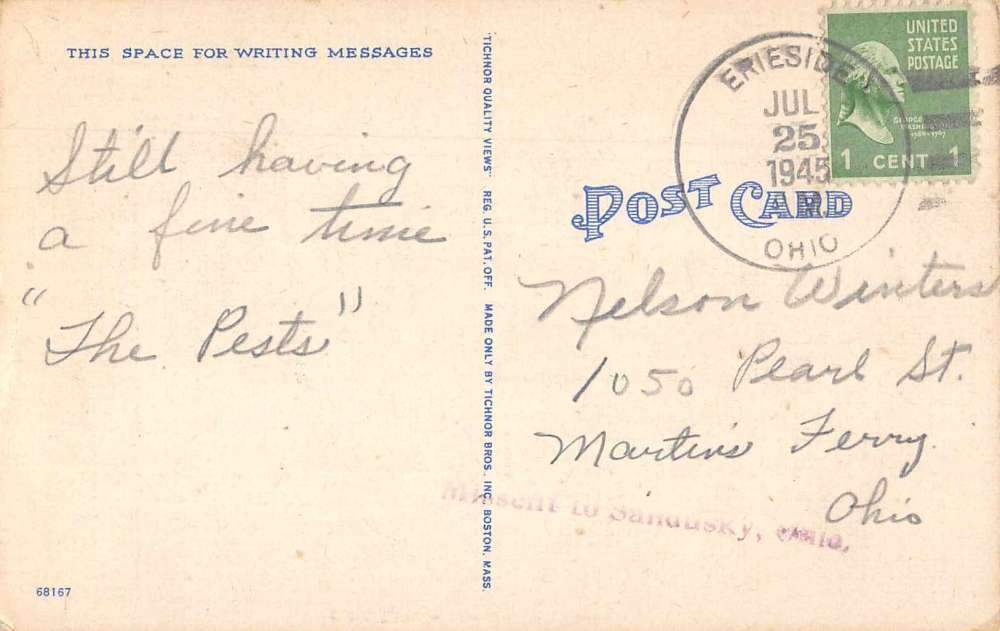 THIS SPACE FOR WRITING MESSAGES
Still having
a fine time
"The Pests"
68167
"TICHNOR QUALITY VIEWS" REG. U.S. PAT. OFF. MADE ONLY BY TICHNOR BROS. INC. BOSTON, MASS.
ERIESIDE
JUL
25
1945
OHIO
UNITED
STATES
POSTAGE
GEORGE
WASHINGTON
1 CENT 1
POST CARD
Nelson Winters
1050 Pearl St.
Martins Ferry
Ohio
Missent to Sandusky, Ohio.